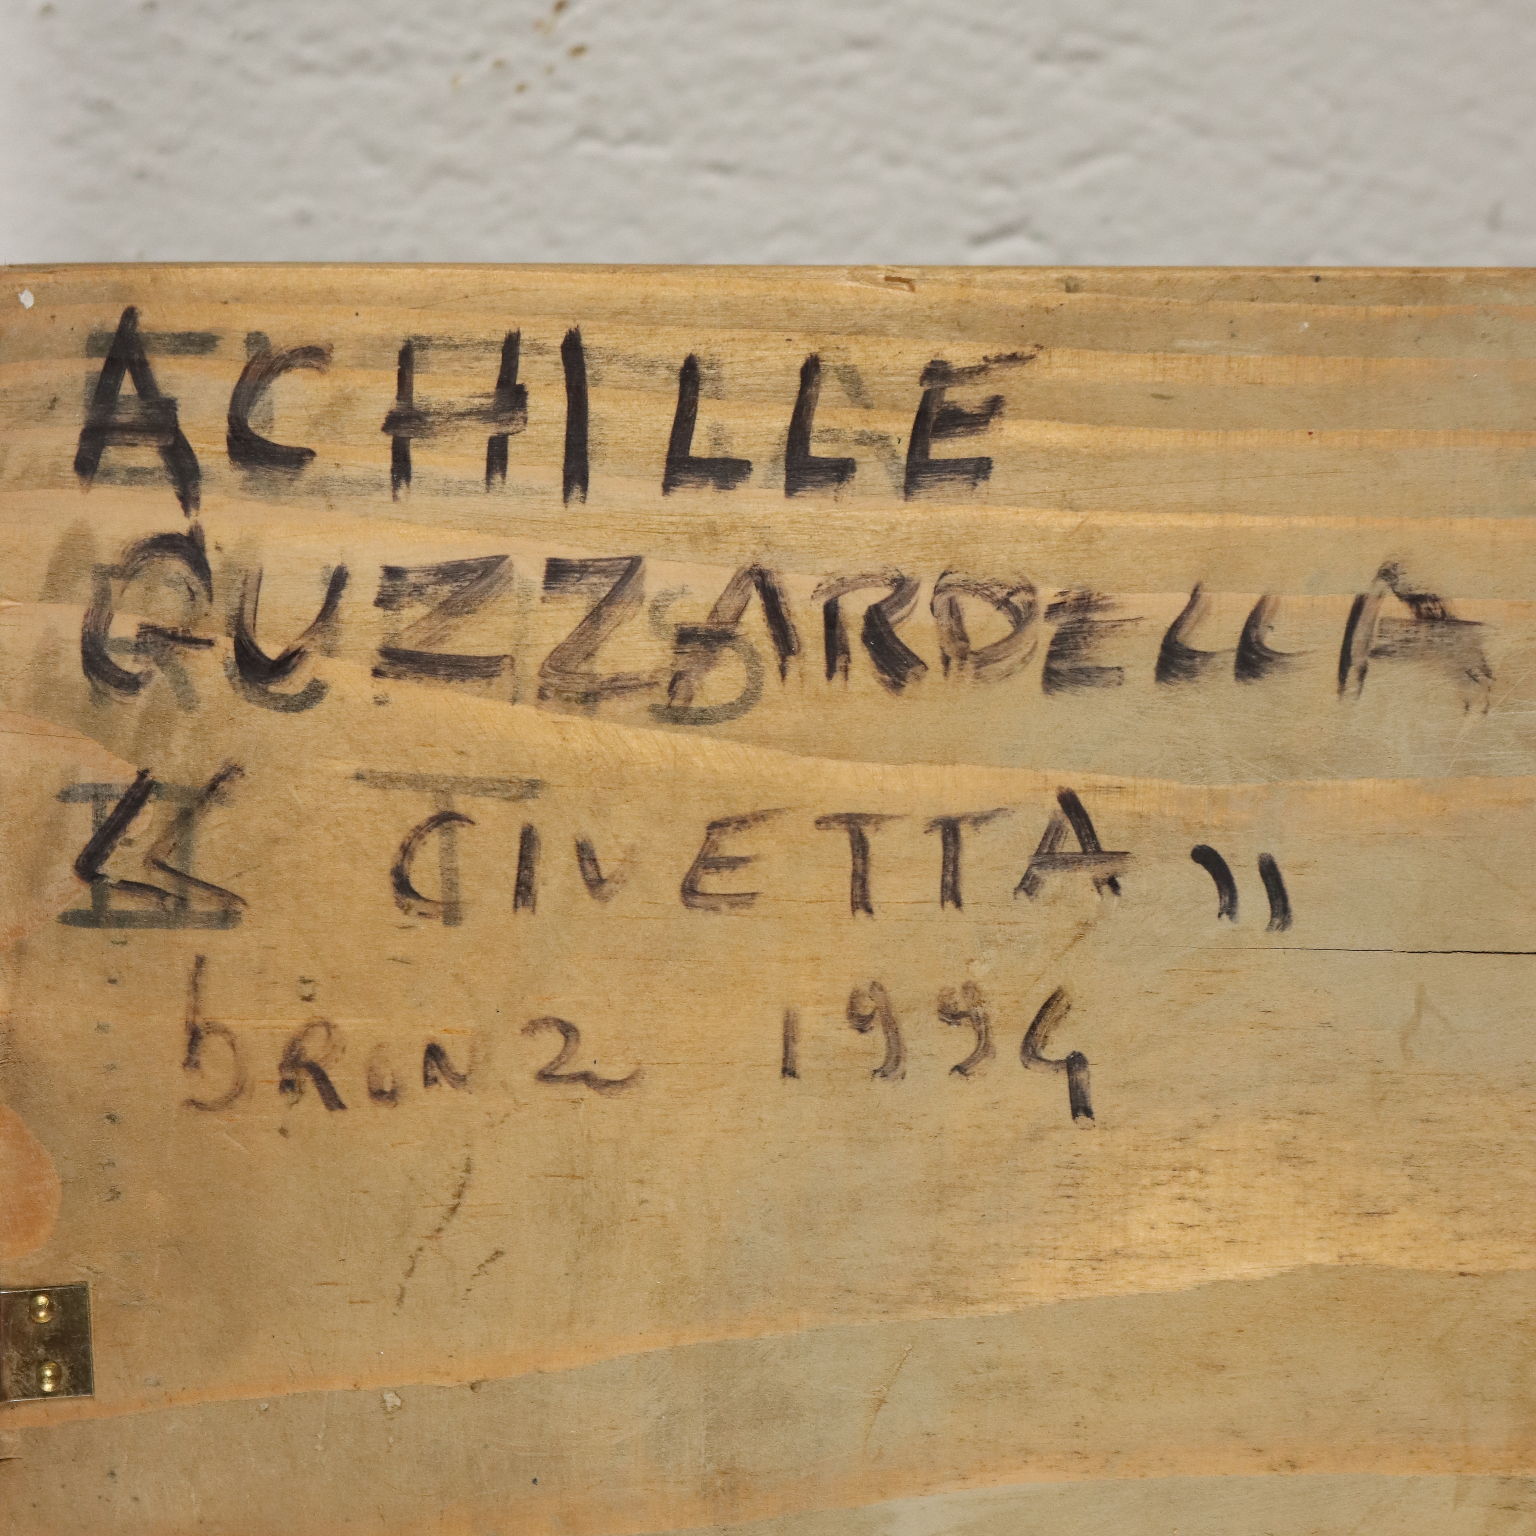 ACHILLE
GUZZARDELLA
“ CIVETTA ”
bRONZ 1994